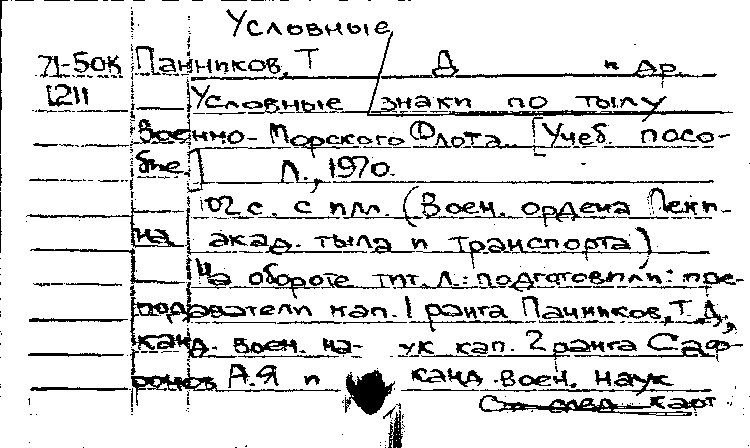 Условные
71-50к Панников, Т Д и др.
1211 Условные знаки по тылу
Военно-Морского Флота. [Учеб. посо-
бие.] Л., 1970.
102 с. с илл. (Воен. ордена Лени-
на акад. тыла и транспорта)
На обороте тит. л.: подготовили: пре-
подаватели кап. 1 ранга Панников, Т. Д.,
канд. воен. на- ук кап. 2 ранга Саф-
ронов А.Я и канд. воен. наук
См след. карт.